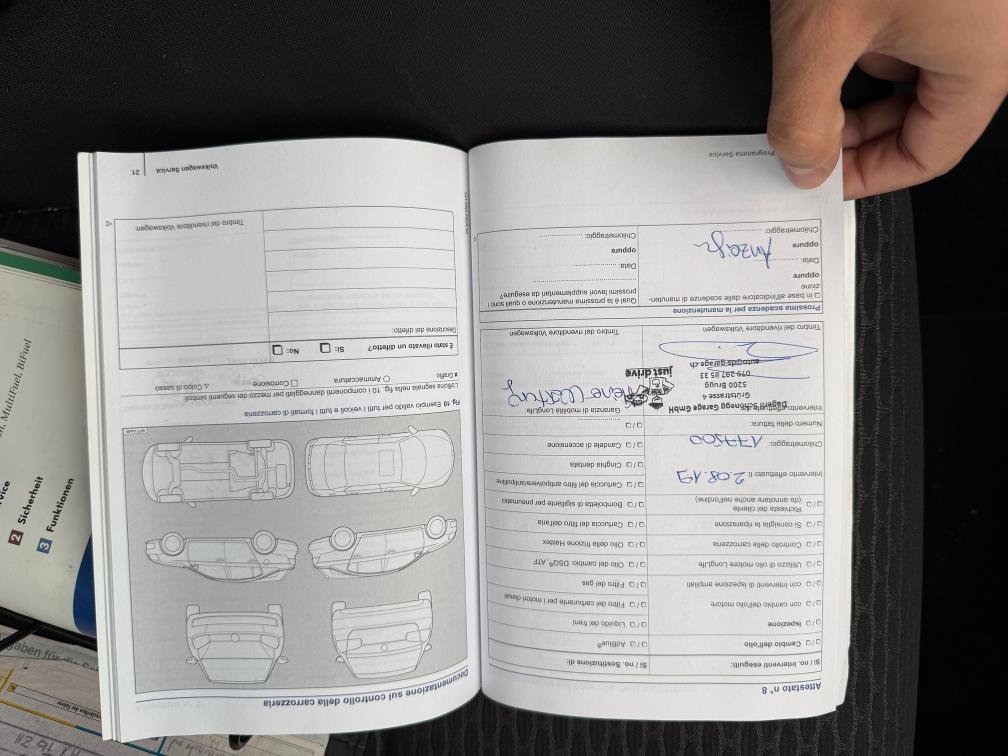 Attestato n° 8
Sì / no. Interventi eseguiti:
☐ / ☐ Cambio dell'olio
☐ / ☐ Ispezione
☐ / ☐ con cambio dell'olio motore
☐ / ☐ con interventi di ispezione ampliati
☐ / ☐ Utilizzo di olio motore LongLife
☐ / ☐ Controllo della carrozzeria
☐ / ☐ Si consiglia la riparazione
☐ / ☐ Richiesta del cliente
(da annotare anche nell'ordine)
Intervento effettuato il: 2.08.19
Chilometraggio: 177500
Numero della fattura:
Intervento effettuato da:
Dagerli Schöneg Garage GmbH
Grütstrasse 4
5200 Brugg
079 297 85 33
auto@ds-garage.ch
just drive
Timbro del rivenditore Volkswagen
Sì / no. Sostituzione di:
☐ / ☐ AdBlue®
☐ / ☐ Liquido dei freni
☐ / ☐ Filtro del carburante per i motori diesel
☐ / ☐ Filtro del gas
☐ / ☐ Olio del cambio: DSG®, ATF
☐ / ☐ Olio della frizione Haldex
☐ / ☐ Cartuccia del filtro dell'aria
☐ / ☐ Bomboletta di sigillante per pneumatici
☐ / ☐ Cartuccia del filtro antipolvere/antipolline
☐ / ☐ Cinghia dentata
☐ / ☐ Candele di accensione
☐ / ☐
Garanzia di mobilità LongLife:
Timbro del rivenditore Volkswagen
Prossima scadenza per la manutenzione
☐ in base all'indicatore delle scadenze di manuten-
zione
oppure
Data:
oppure
Chilometraggio:
Qual è la prossima manutenzione o quali sono i
prossimi lavori supplementari da eseguire?
Data:
oppure
Chilometraggio:
Programma Service
Documentazione sul controllo della carrozzeria
Fig. 10 Esempio valido per tutti i veicoli e tutti i formati di carrozzeria
L'officina segnala nella fig. 10 i componenti danneggiati per mezzo dei seguenti simboli:
Graffio
Ammaccatura
Corrosione
Colpo di sasso
È stato rilevato un difetto?
Sì: ☐
No: ☐
Descrizione del difetto:
Timbro del rivenditore Volkswagen
Volkswagen Service
21
MultiFuel, BiFuel
2 Sicherheit
3 Funktionen